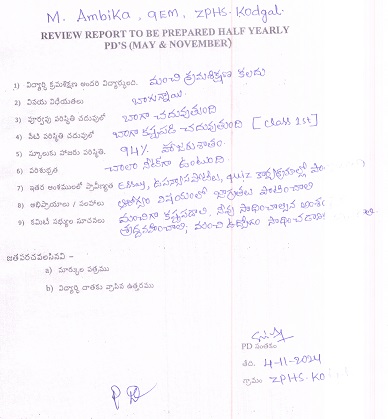 M. Ambika, 9EM, ZPHS-Kodgal
REVIEW REPORT TO BE PREPARED HALF YEARLY
PD'S (MAY & NOVEMBER)
1) విద్యార్థి క్రమశిక్షణ అందరి విద్యార్థులందు. మంచి క్రమశిక్షణ కలదు
2) వినయ విధేయతలు బాగున్నాయి.
3) పూర్వపు పరిస్థితి చదువులో బాగా చదువుతుంది
4) నేటి పరిస్థితి చదువులో బాగా కష్టపడి చదువుతుంది [class 1st]
5) స్కూలుకు హాజరు పరిస్థితి. 94% హాజరుశాతం.
6) పరిశుభ్రత చాలా నీట్‌గా ఉంటుంది
7) ఇతర అంశములలో ప్రావీణ్యత Essay, ఉపన్యాసపోటీలు, quiz కార్యక్రమాల్లో
8) అభిప్రాయాలు / సలహాలు ఆరోగ్యం విషయంలో జాగ్రత్తలు పాటించాలి
9) కమిటీ సభ్యుల సూచనలు మంచిగా కష్టపడాలి. నీవు సాధించాల్సిన
మంచి ఉద్యోగం
జతపరచవలసినవి :-
a) మార్కుల పత్రము
b) విద్యార్థి దాతకు వ్రాసిన ఉత్తరము
PD సంతకం
తేది. 4-11-2024
గ్రామం ZPHS-KO
PD